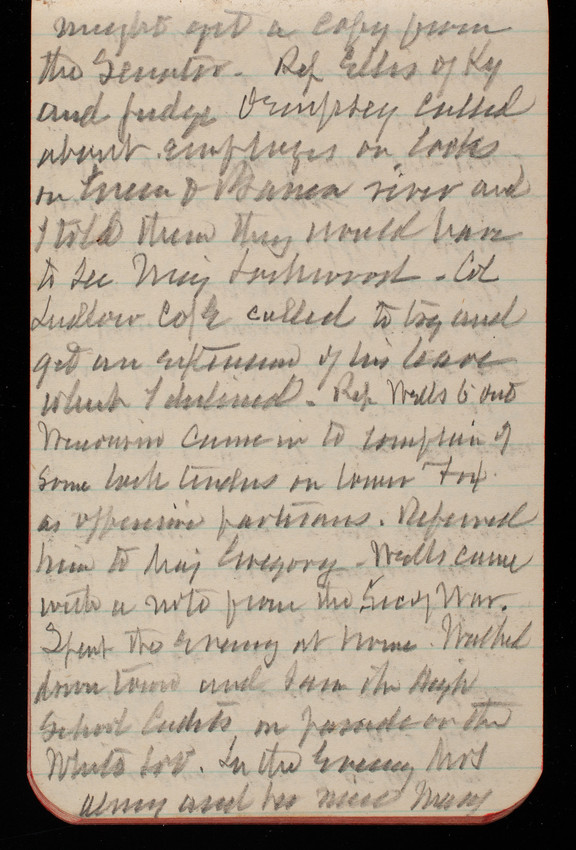 might get a copy from
the Senator. Rep Ellis of Ky
and Judge Dempsey called
about employes on locks
on Green & Barren river and
I told them they would have
to see Maj Lockwood. Col
Ludlow Co E called to try and
get an extension of his leave
which I declined. Rep Wells 6 Dist
Wisconsin came in to complain of
some lock tenders on lower Fox
as offensive partisans. Referred
him to Maj Gregory. Wells came
with a note from the Sec of War.
Spent the evening at home. Walked
down town and saw the High
School Cadets on parade on the
White Lot. In the Evening Mrs
and her niece Mary